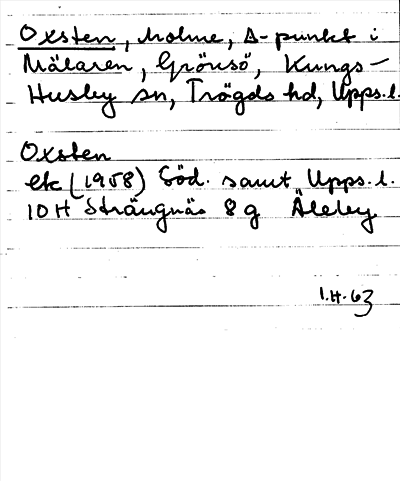 Oxsten, holme, Δ-punkt i
Mälaren, Grönsö, Kungs-
Husby sn, Trögds hd, Upps. l.
Oxsten
ek (1958) Söd. samt Upps. l.
10 H Strängnäs 8 g Äleby
1.H.63